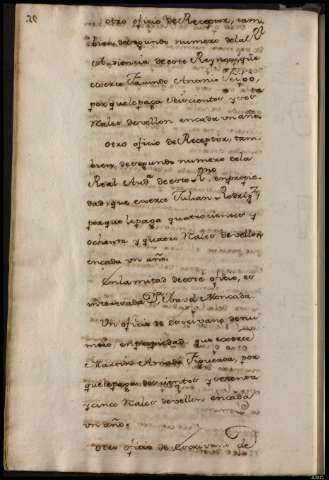 otro oficio de Receptor, tam
bien, de segundo numero de la Rl
Audiencia de este Reyno, que
exerce Jazinto Antonio Seijoo,
por que le paga seiscientos, y dos
Reales de vellon en cada un año
otro oficio de Receptor, tam
bien, de segundo numero de la
Real Auda de este Rno en propie
dad, que exerce Julian Rodrigz
por que le paga quatrocientos y
ochenta y quatro Reales de vellon
en cada un año.
En la mitad de este oficio, es
interesada Da Moncada.
Un oficio de Escrivano de nu
mero, en propiedad que exerce
Figueroa, por
que le paga, doscientos y setenta
y cinco Reales de vellon en cada
un año.
otro oficio de Escrivano de